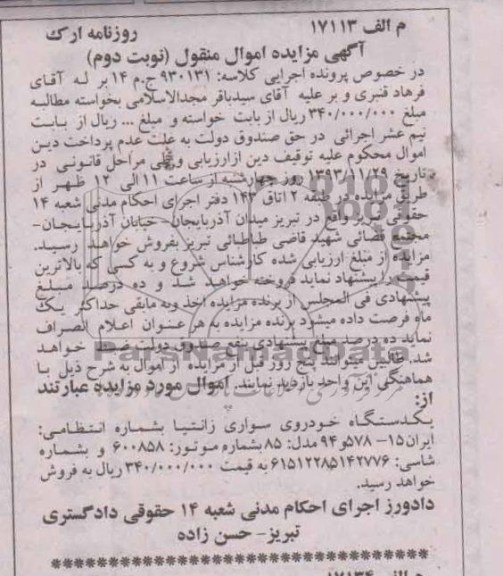 م الف ۱۷۱۱۳ روزنامه ارک
آگهی مزایده اموال منقول (نوبت دوم)
در خصوص پرونده اجرایی کلاسه: ۹۳۰۱۳۱ ج.م ۱۴ بر له آقای
فرهاد قنبری و بر علیه آقای سیدباقر مجدالاسلامی بخواسته مطالبه
مبلغ ۳۴۰/۰۰۰/۰۰۰ ریال از بابت خواسته و مبلغ ... ریال از بابت
نیم عشر اجرائی در حق صندوق دولت به علت عدم پرداخت دین
اموال محکوم علیه توقیف دین ازارزیابی وطی مراحل قانونی در
تاریخ ۱۳۹۳/۱۱/۲۹ روز چهارشنبه از ساعت ۱۱ الی ۱۲ ظهر از
طریق مزایده در طبقه ۲ اتاق ۱۴۳ دفتر اجرای احکام مدنی شعبه ۱۴
حقوقی تبریز واقع در تبریز میدان آذربایجان- خیابان آذربایجان-
مجتمع قضائی شهید قاضی طباطبائی تبریز بفروش خواهد رسید.
مزایده از مبلغ ارزیابی شده کارشناس شروع و به کسی که بالاترین
قیمت را پیشنهاد نماید فروخته خواهد شد و ده درصد مبلغ
پیشنهادی فی المجلس از برنده مزایده اخذ وبه مابقی حداکثر یک
ماه فرصت داده میشود برنده مزایده به هر عنوان اعلام انصراف
نماید ده درصد مبلغ پیشنهادی بنفع صندوق دولت ضبط خواهد
شد.طالبین میتوانند پنج روز قبل از مزایده از اموال به شرح ذیل با
هماهنگی این واحد بازدید نمایند. اموال مورد مزایده عبارتند
از:
یکدستگاه خودروی سواری زانتیا بشماره انتظامی:
ایران۱۵- ۵۷۸و۹۴ مدل: ۸۵ بشماره موتور: ۶۰۰۸۵۸ و بشماره
شاسی: ۶۱۵۱۲۲۸۵۱۴۲۷۷۶ به قیمت ۳۴۰/۰۰۰/۰۰۰ ریال به فروش
خواهد رسید.
دادورز اجرای احکام مدنی شعبه ۱۴ حقوقی دادگستری
تبریز- حسن زاده
م الف ۱۷۱۳۴
ParsNamadData